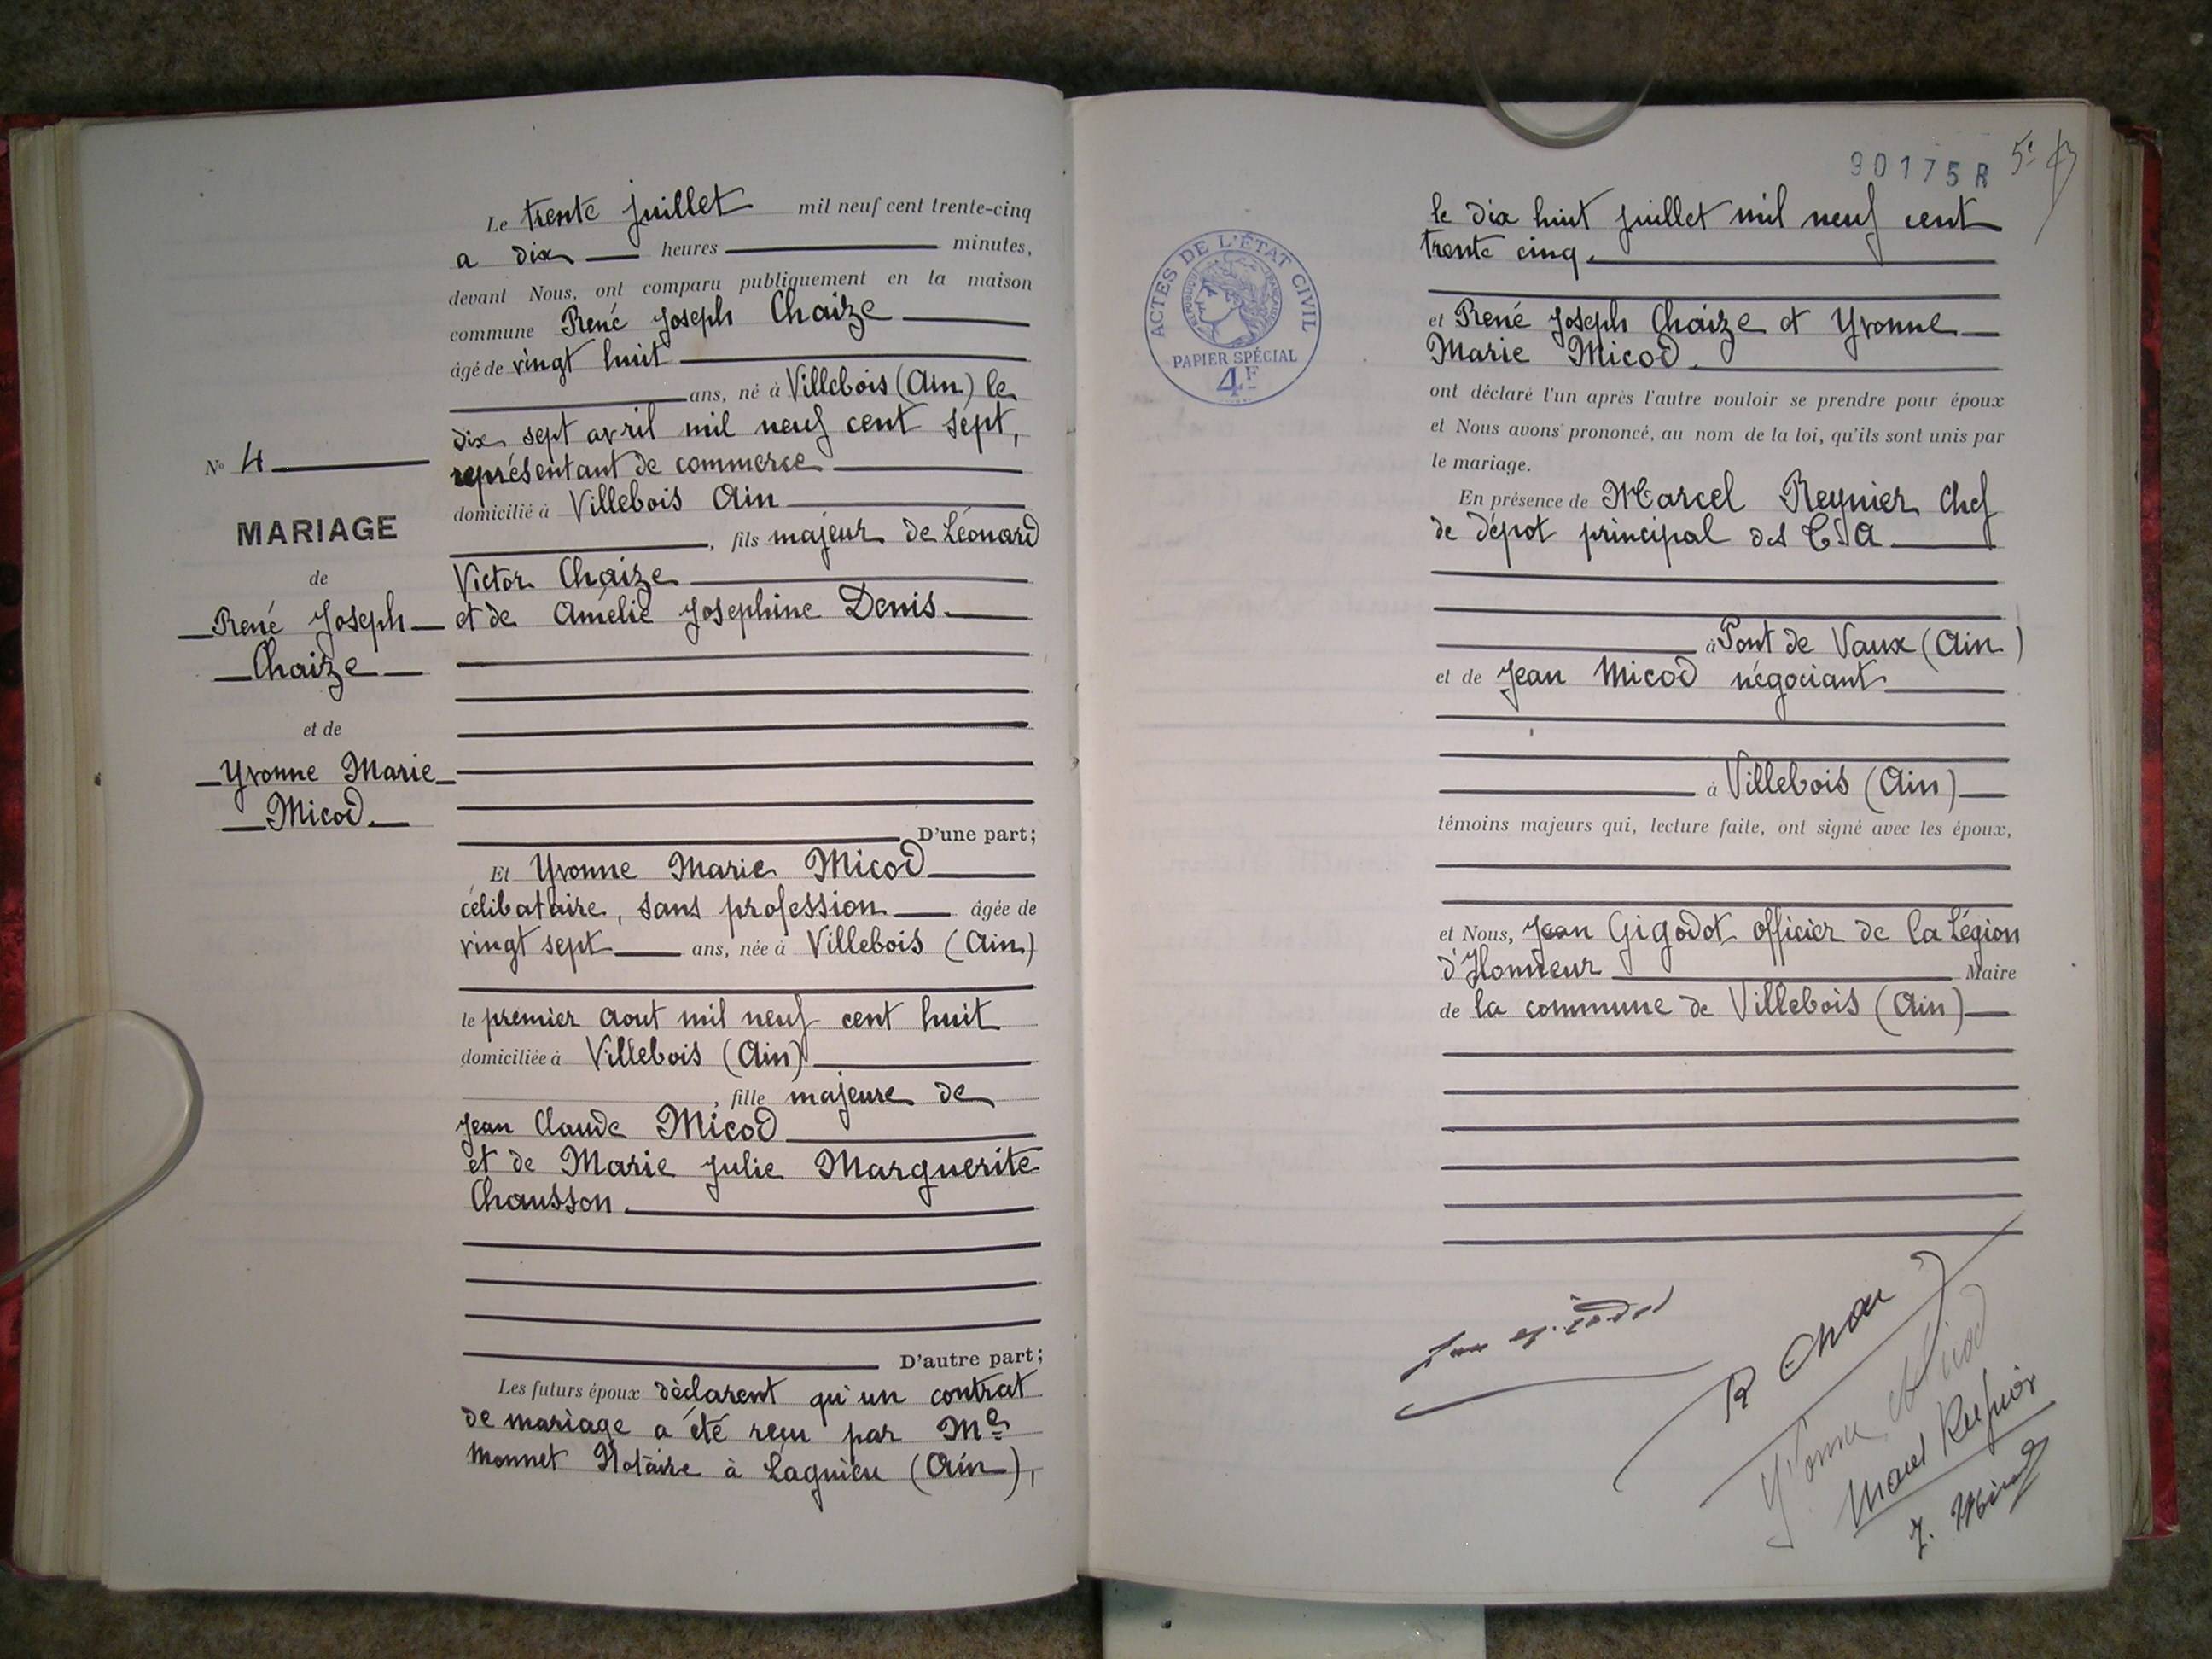 Le trente juillet mil neuf cent trente-cinq
a dix heures minutes,
devant Nous, ont comparu publiquement en la maison
commune René Joseph Chaize
âgé de vingt huit
ans, né à Villebois (Ain) le
dix sept avril mil neuf cent sept,
représentant de commerce
domicilié à Villebois Ain
, fils majeur de Léonard
Victor Chaize
et de Amélie Josephine Denis.
D'une part;
Et Yvonne Marie Micod
célibataire, sans profession âgée de
vingt sept ans, née à Villebois (Ain)
le premier aout mil neuf cent huit
domiciliée à Villebois (Ain)
, fille majeure de
Jean Claude Micod
et de Marie Julie Marguerite
Chausson.
D'autre part;
Les futurs époux déclarent qu'un contrat
de mariage a été reçu par Me
Monnet Notaire à Lagnieu (Ain),
No 4
MARIAGE
de
René Joseph
Chaize
et de
Yvonne Marie
Micod.
90175 R
ACTES DE L'ÉTAT CIVIL
RÉPUBLIQUE FRANÇAISE
PAPIER SPÉCIAL
4F
le dix huit juillet mil neuf cent
trente cinq.
et René Joseph Chaize et Yvonne
Marie Micod.
ont déclaré l'un après l'autre vouloir se prendre pour époux
et Nous avons prononcé, au nom de la loi, qu'ils sont unis par
le mariage.
En présence de Marcel Reynier Chef
de dépot principal des
à Pont de Vaux (Ain)
et de Jean Micod négociant
à Villebois (Ain)
témoins majeurs qui, lecture faite, ont signé avec les époux,
et Nous, Jean Gigodot officier de la Légion
d'Honneur Maire
de la commune de Villebois (Ain)
R Chaize
Yvonne Micod
Marcel Reynier
J. Micod